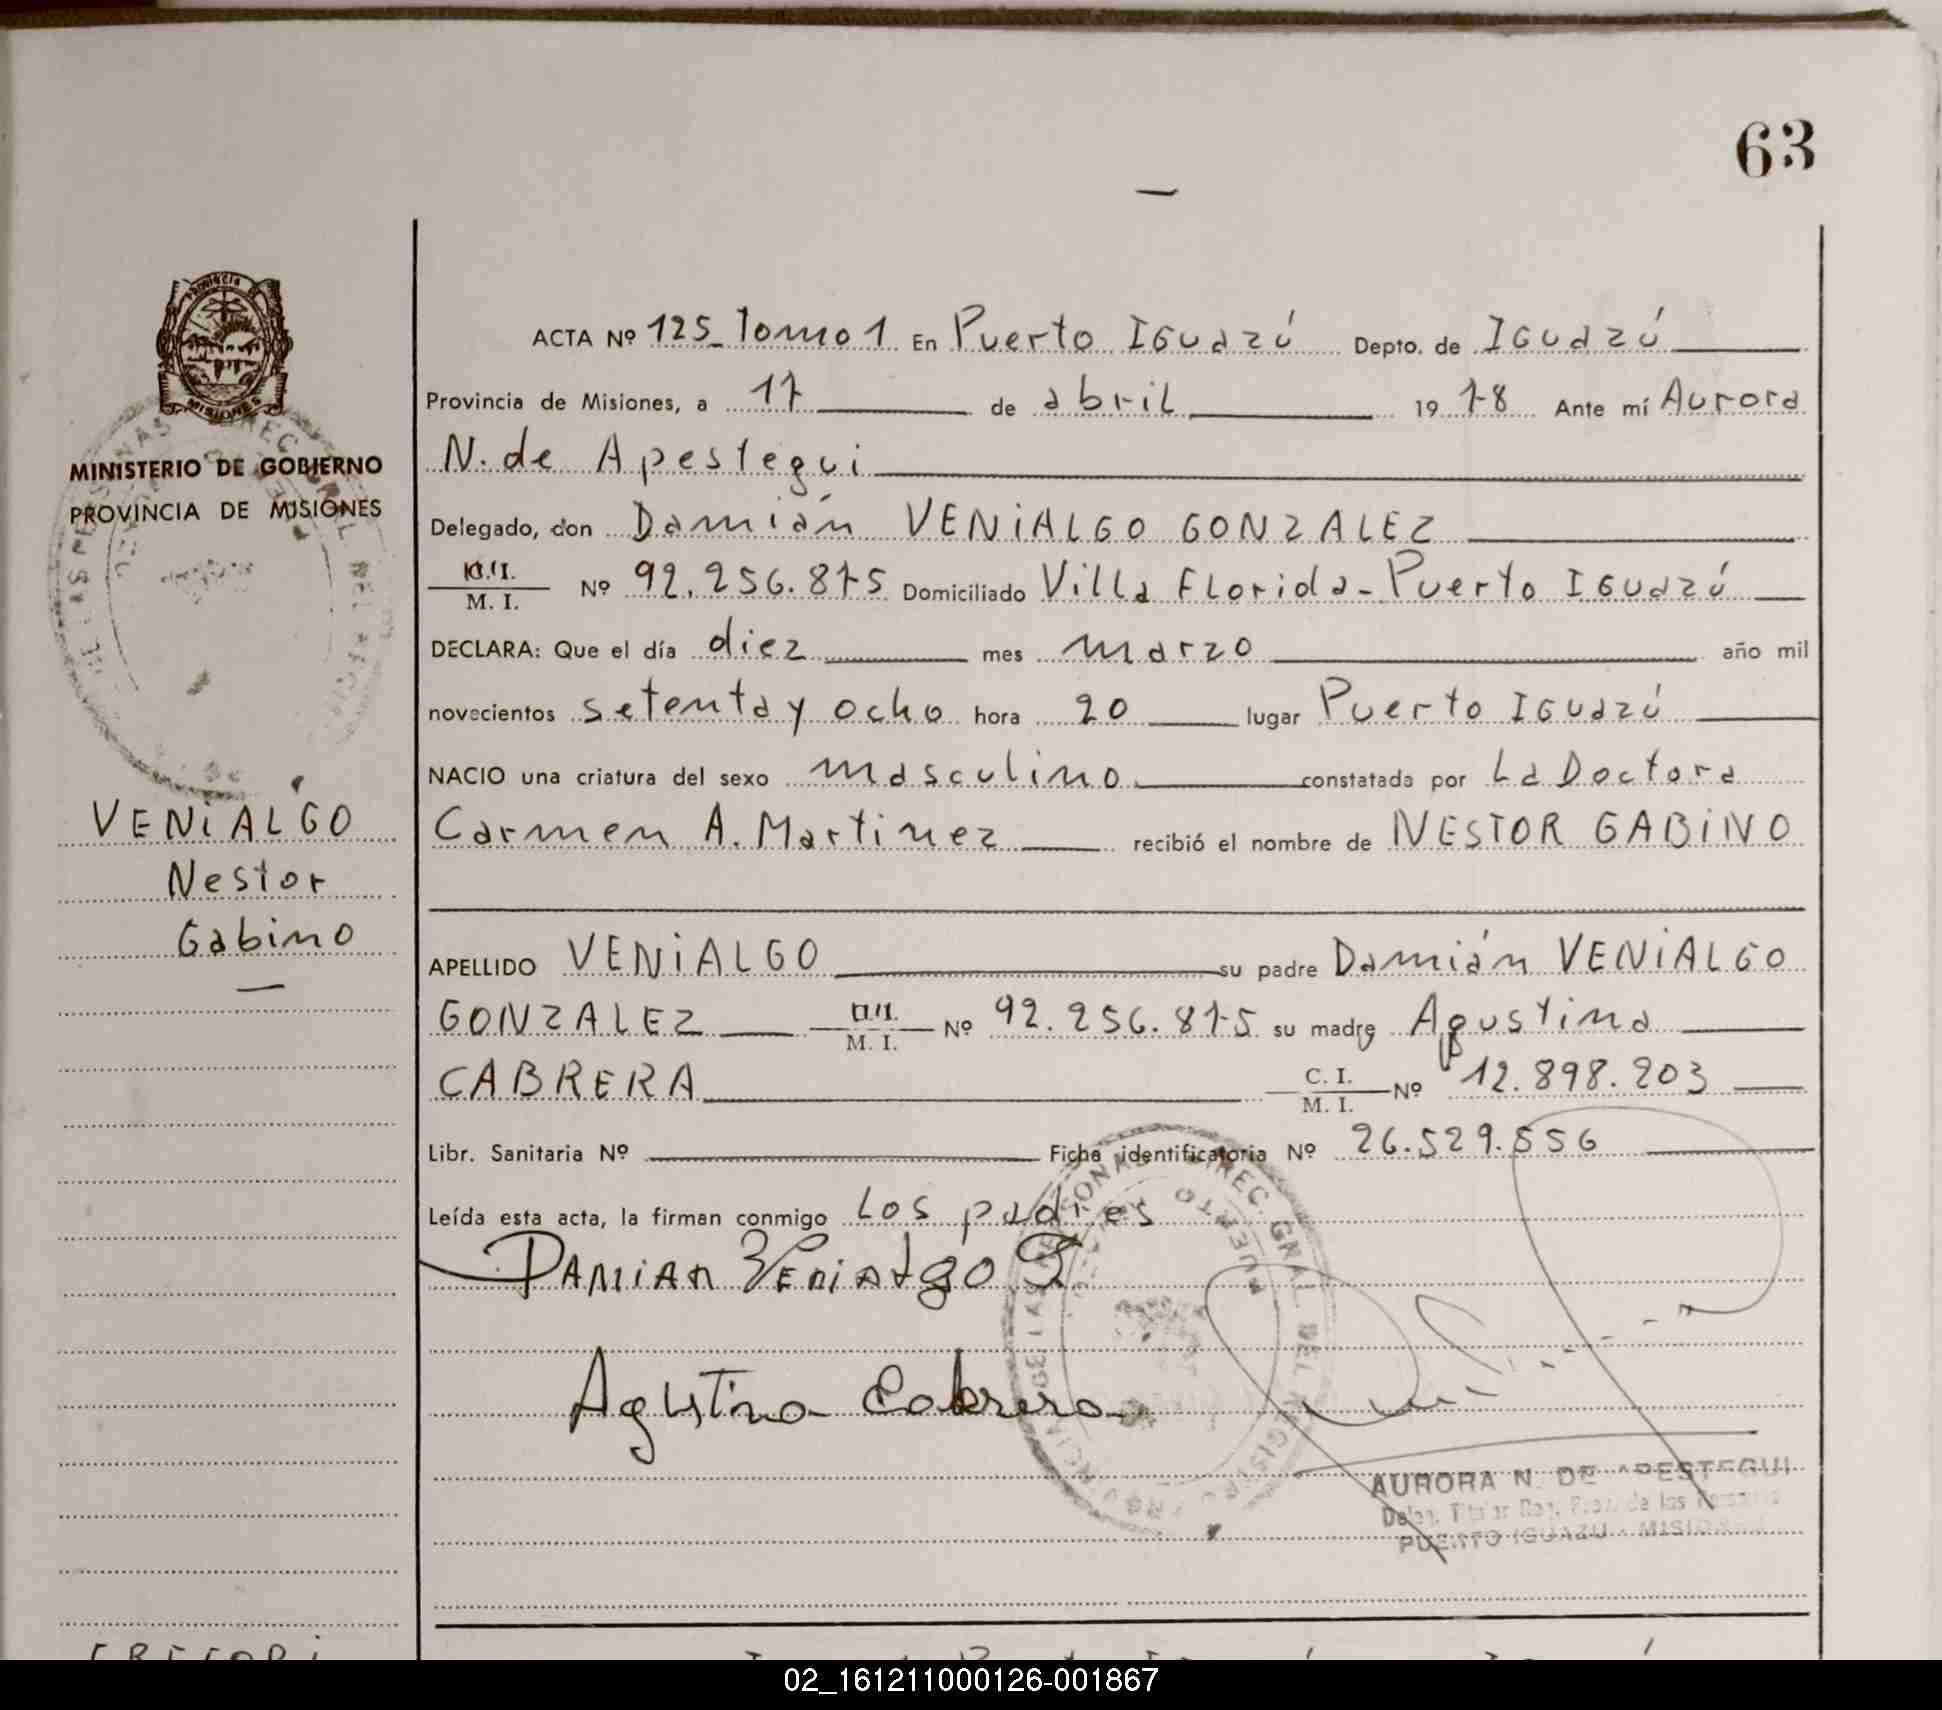 63
ACTA Nº 125_ Tomo 1 En Puerto Iguazú Depto. de Iguazú
Provincia de Misiones, a 17 de abril 19 78 Ante mí Aurora
N. de Apestegui
MINISTERIO DE GOBIERNO
PROVINCIA DE MISIONES
Delegado, don Damián VENIALGO GONZALEZ
M. I. Nº 92.256.875 Domiciliado Villa Florida - Puerto Iguazú
DECLARA: Que el día diez mes marzo año mil
novecientos setenta y ocho hora 20 lugar Puerto Iguazú
NACIO una criatura del sexo masculino constatada por La Doctora
Carmen A. Martinez recibió el nombre de NESTOR GABINO
VENIALGO
Nestor
Gabino
APELLIDO VENIALGO su padre Damián VENIALGO
GONZALEZ M. I. Nº 92.256.875 su madre Agustina
CABRERA C. I. M. I. Nº 12.898.203
Libr. Sanitaria Nº Ficha identificatoria Nº 26.529.556
Leída esta acta, la firman conmigo Los padres
DAMIAN Venialgo G
Agustina Cabrera
AURORA N. DE APESTEGUI
PUERTO IGUAZU - MISIONES
02_161211000126-001867